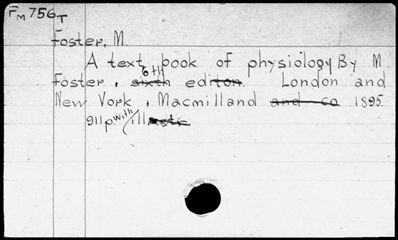 FM 756T
Foster, M.
A text book of physiology By M
Foster. 6th sixth editon London and
New York, Macmilland and co 1895
911 p with ill